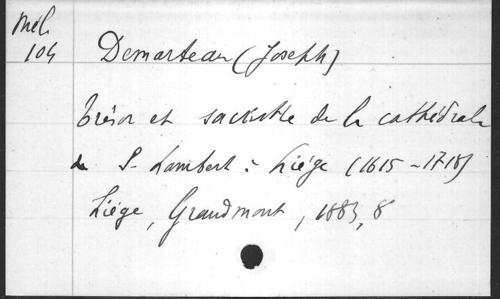 Mél.
104
Demarteau (Joseph)
Trésor et sacristie de la cathédrale
de S. Lambert à Liége (1615-1718)
Liége, Grandmont, 1883, 8